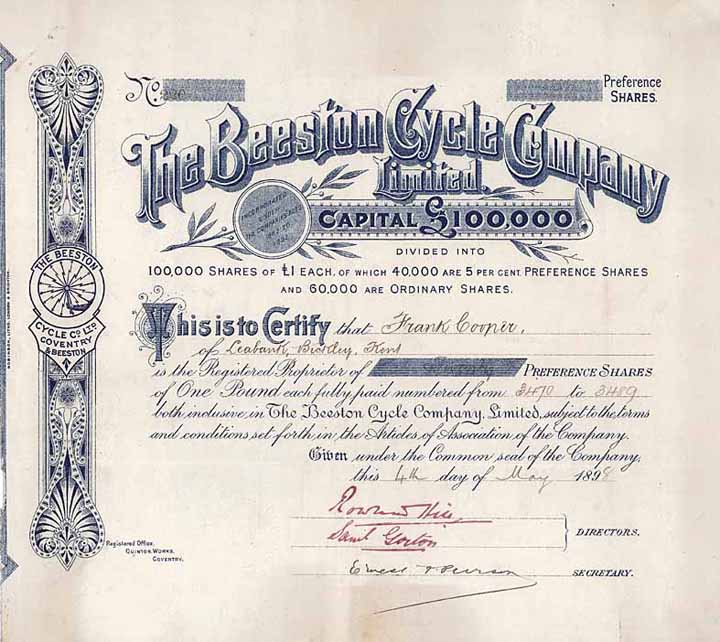 No.
Preference
SHARES.
The Beeston Cycle Company
Limited.
CAPITAL £100,000.
INCORPORATED
DIVIDED INTO
100,000 SHARES OF £1 EACH, OF WHICH 40,000 ARE 5 PER CENT. PREFERENCE SHARES
AND 60,000 ARE ORDINARY SHARES.
THE BEESTON
CYCLE CO LTD
COVENTRY
& BEESTON
This is to Certify that Frank Cooper,
of Leabank, Bickley, Kent
is the Registered Proprietor of PREFERENCE SHARES
of One Pound each fully paid numbered from 3470 to 3489
both inclusive, in The Beeston Cycle Company, Limited, subject to the terms
and conditions set forth in the Articles of Association of the Company.
Given under the Common seal of the Company,
this 4th day of May 1898
Rowland Hill
Saml Gorton
DIRECTORS.
Ernest
SECRETARY.
Registered Office,
QUINTON WORKS,
COVENTRY.